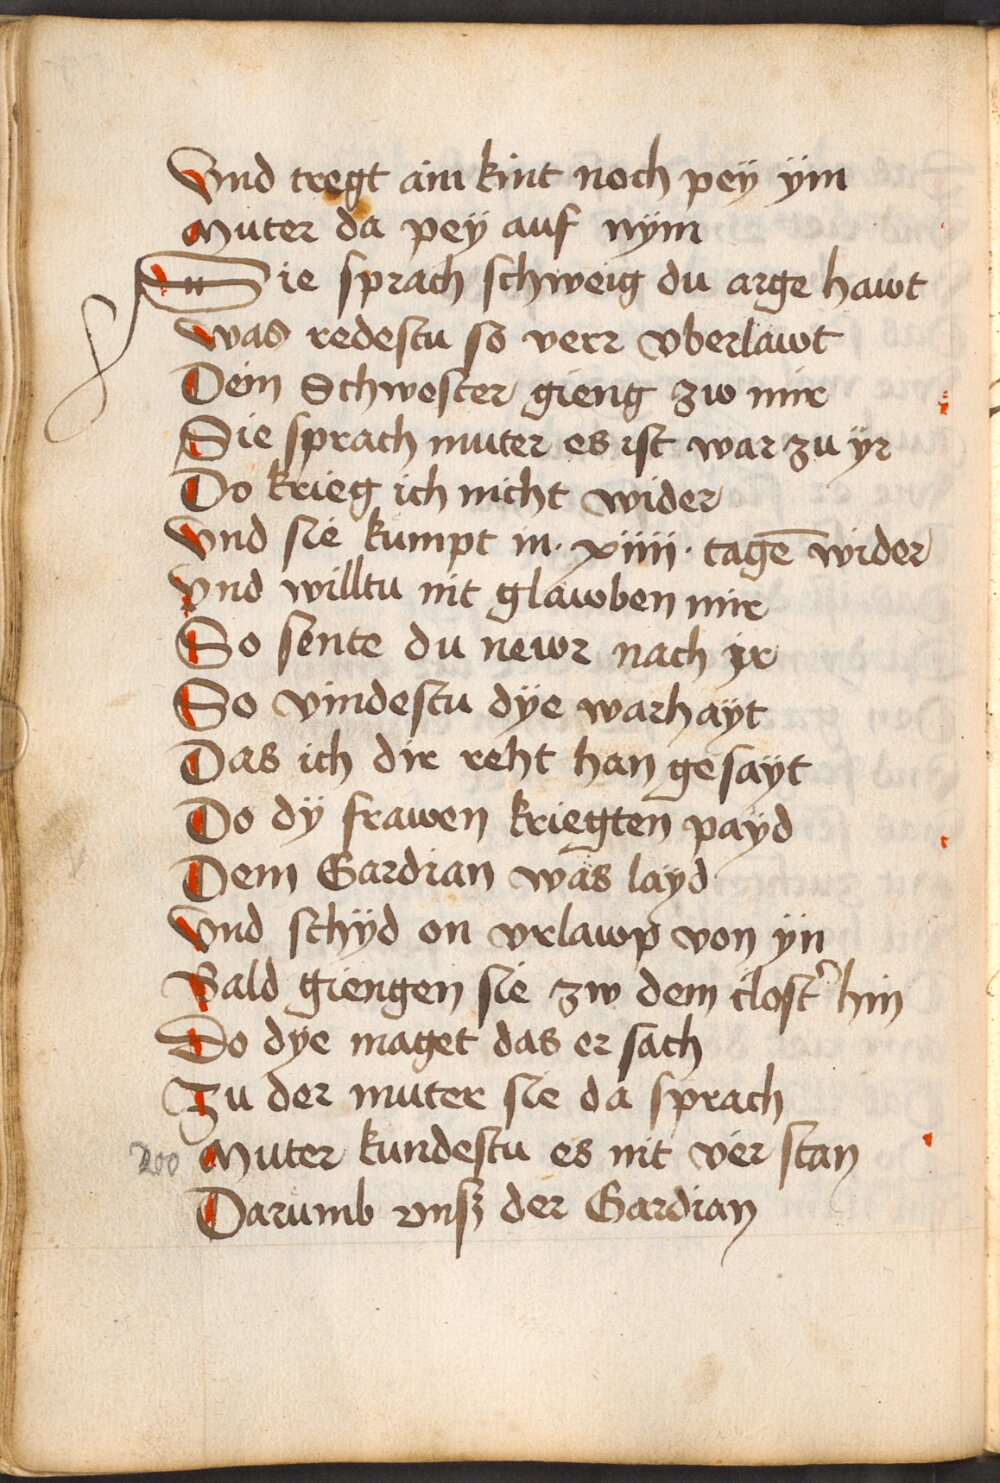 Vnd tregt ain kint noch pey ÿm
Muter da pey auf nÿm
Sie sprach schweig du arge hawt
Was redestu so verr vberlawt
Dein Schwester gieng zw mir
Sie sprach muter es ist war zu ÿr
Do krieg ich nicht wider
Vnd sie kumpt in · xiiii · tagē wider
Vnd willtu nit glawben mir
So sente du newr nach ÿr
So vindestu dÿe warhaÿt
Das ich dir reht han gesaÿt
Do dÿ frawen kriegten paÿd
Dem Gardian was laÿd
Vnd schÿd on vrlawp von ÿn
Bald giengen sie zw dem clost᷑ hin
Do dÿe maget das er sach
Zu der muter sie da sprach
200 Muter kundestu es nit ver stan
Darumb vnsz der Gardian